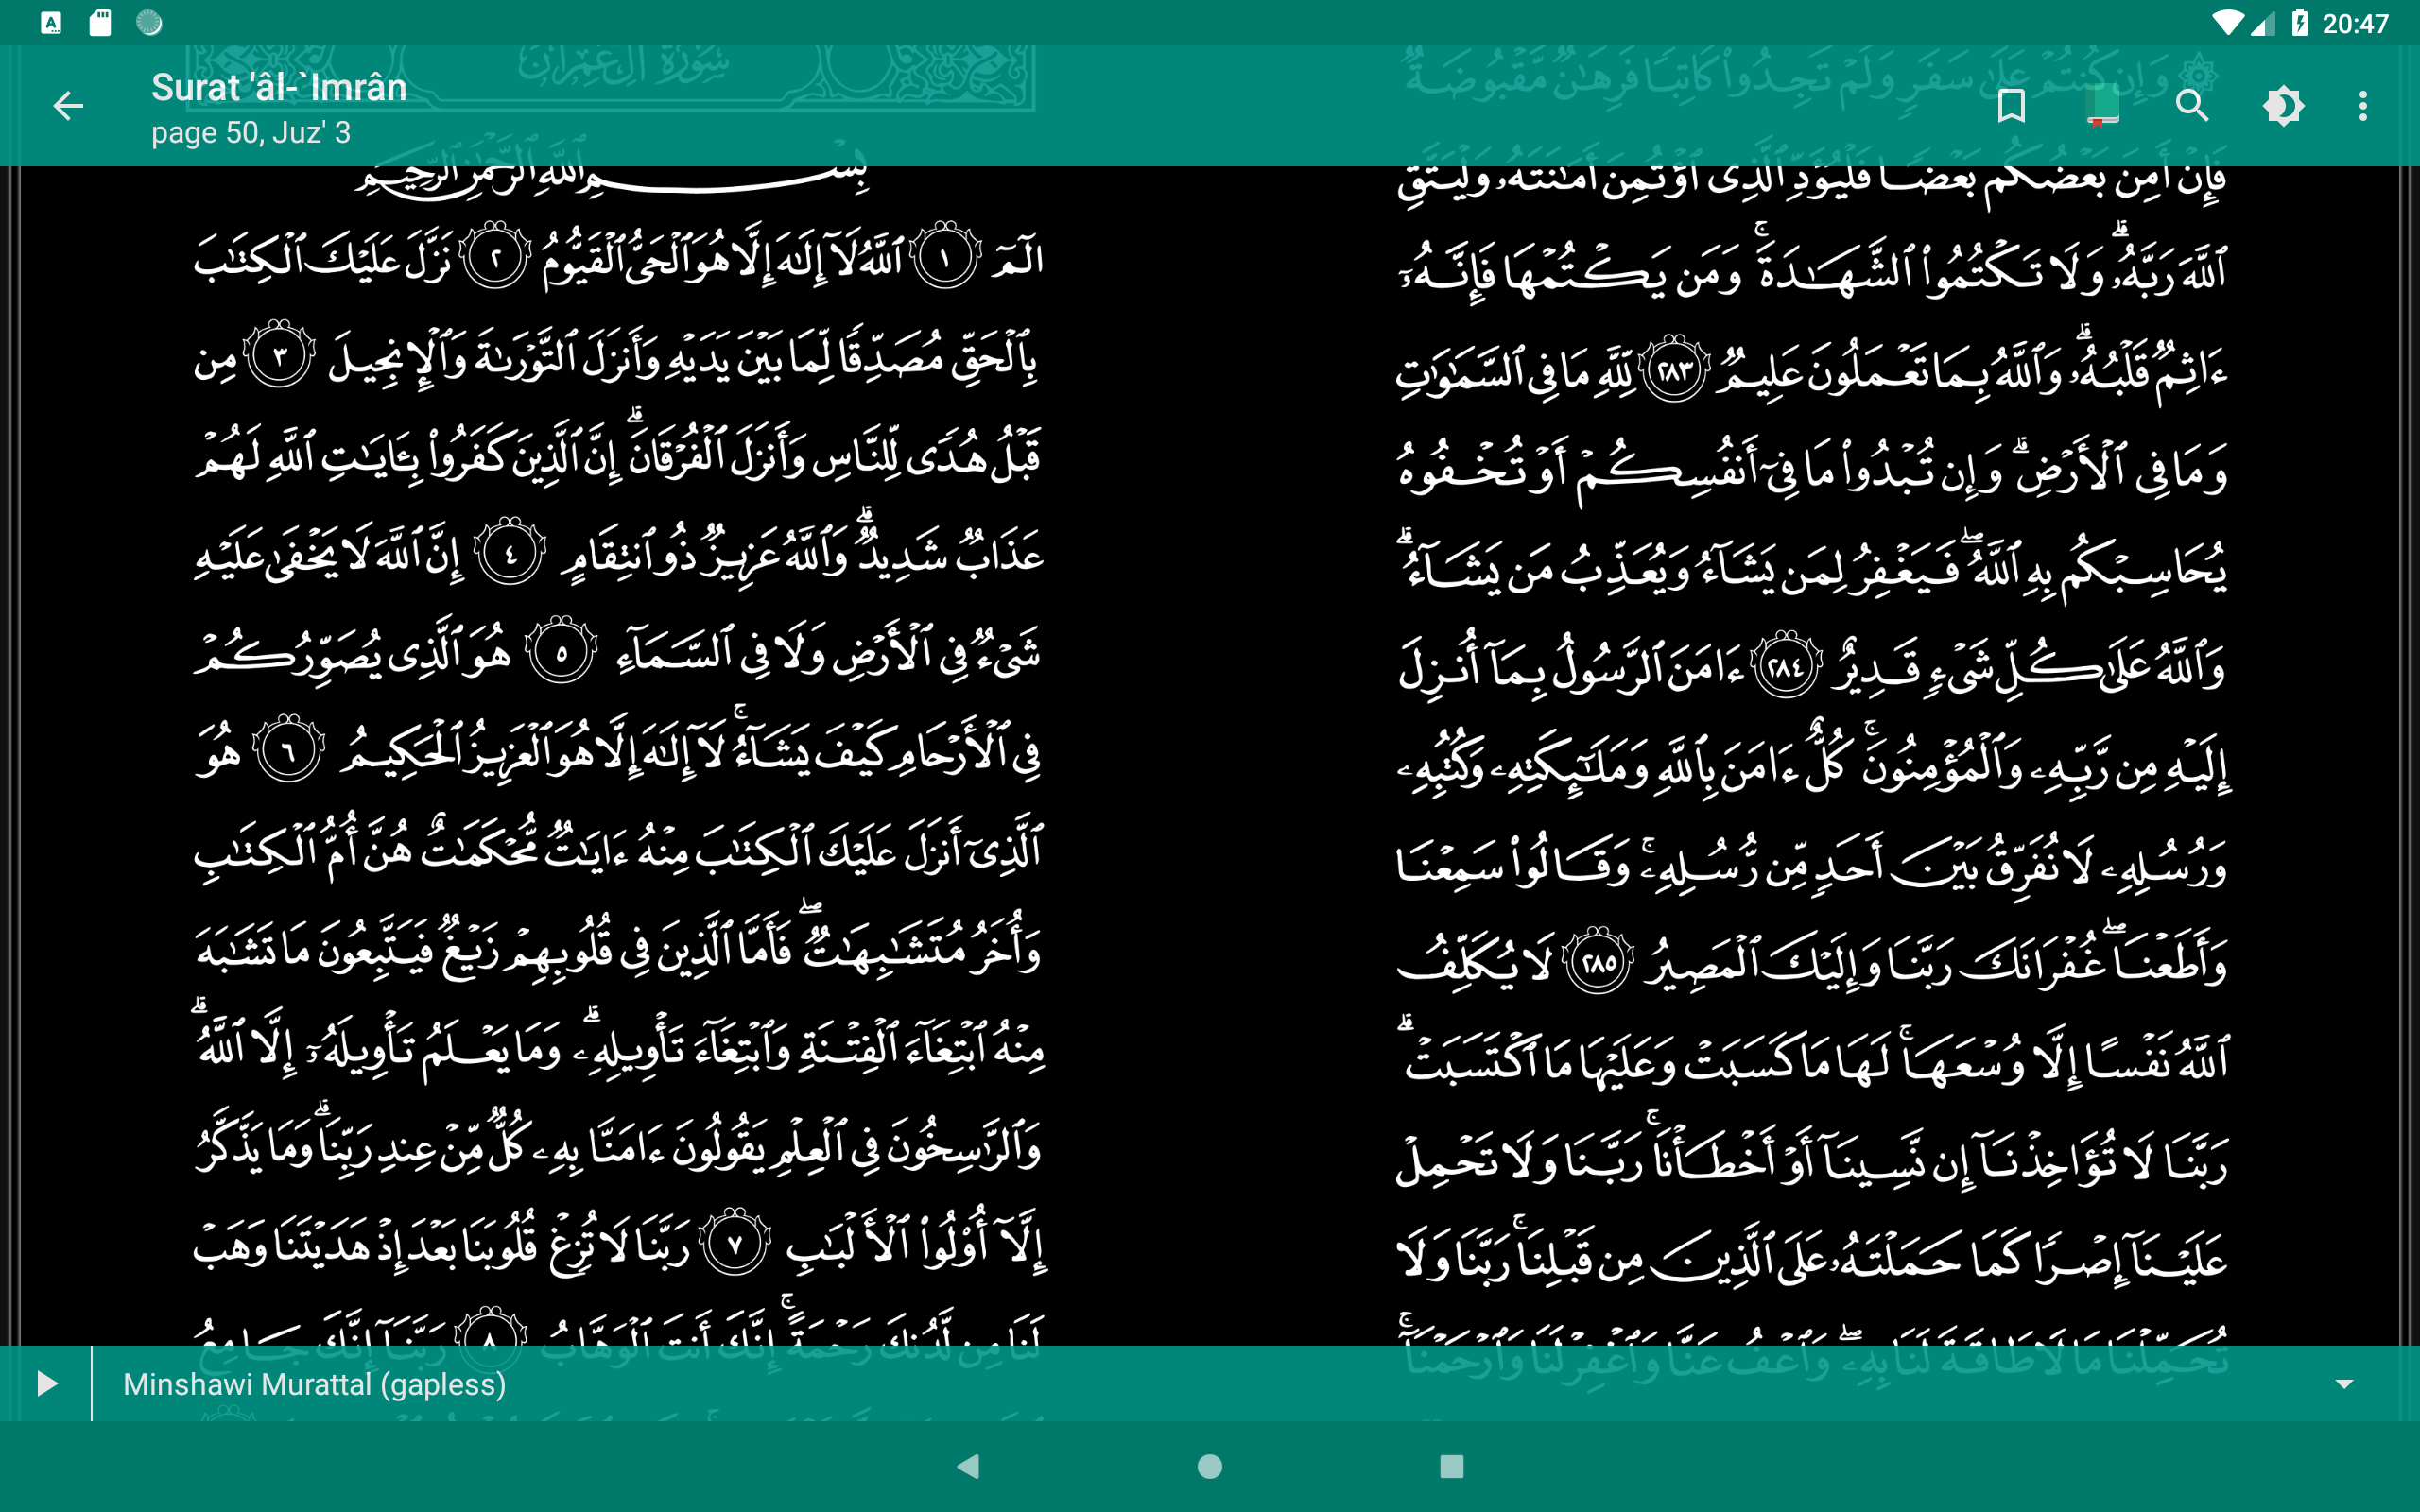 20:47
Surat 'âl-`Imrân
page 50, Juz' 3
۞ وَإِن كُنتُمْ عَلَىٰ سَفَرٍ وَلَمْ تَجِدُوا۟ كَاتِبًا فَرِهَٰنٌ مَّقْبُوضَةٌ
فَإِنْ أَمِنَ بَعْضُكُم بَعْضًا فَلْيُؤَدِّ ٱلَّذِى ٱؤْتُمِنَ أَمَٰنَتَهُۥ وَلْيَتَّقِ
ٱللَّهَ رَبَّهُۥۗ وَلَا تَكْتُمُوا۟ ٱلشَّهَٰدَةَۚ وَمَن يَكْتُمْهَا فَإِنَّهُۥٓ
ءَاثِمٌ قَلْبُهُۥۗ وَٱللَّهُ بِمَا تَعْمَلُونَ عَلِيمٌ ٢٨٣ لِّلَّهِ مَا فِى ٱلسَّمَٰوَٰتِ
وَمَا فِى ٱلْأَرْضِۗ وَإِن تُبْدُوا۟ مَا فِىٓ أَنفُسِكُمْ أَوْ تُخْفُوهُ
يُحَاسِبْكُم بِهِ ٱللَّهُۖ فَيَغْفِرُ لِمَن يَشَآءُ وَيُعَذِّبُ مَن يَشَآءُۗ
وَٱللَّهُ عَلَىٰ كُلِّ شَىْءٍ قَدِيرٌ ٢٨٤ ءَامَنَ ٱلرَّسُولُ بِمَآ أُنزِلَ
إِلَيْهِ مِن رَّبِّهِۦ وَٱلْمُؤْمِنُونَۚ كُلٌّ ءَامَنَ بِٱللَّهِ وَمَلَٰٓئِكَتِهِۦ وَكُتُبِهِۦ
وَرُسُلِهِۦ لَا نُفَرِّقُ بَيْنَ أَحَدٍ مِّن رُّسُلِهِۦۚ وَقَالُوا۟ سَمِعْنَا
وَأَطَعْنَاۖ غُفْرَانَكَ رَبَّنَا وَإِلَيْكَ ٱلْمَصِيرُ ٢٨٥ لَا يُكَلِّفُ
ٱللَّهُ نَفْسًا إِلَّا وُسْعَهَاۚ لَهَا مَا كَسَبَتْ وَعَلَيْهَا مَا ٱكْتَسَبَتْۗ
رَبَّنَا لَا تُؤَاخِذْنَآ إِن نَّسِينَآ أَوْ أَخْطَأْنَاۚ رَبَّنَا وَلَا تَحْمِلْ
عَلَيْنَآ إِصْرًا كَمَا حَمَلْتَهُۥ عَلَى ٱلَّذِينَ مِن قَبْلِنَاۚ رَبَّنَا وَلَا
تُحَمِّلْنَا مَا لَا طَاقَةَ لَنَا بِهِۦۖ وَٱعْفُ عَنَّا وَٱغْفِرْ لَنَا وَٱرْحَمْنَآۚ
سُورَةُ آلِ عِمْرَانَ
بِسْمِ ٱللَّهِ ٱلرَّحْمَٰنِ ٱلرَّحِيمِ
الٓمٓ ١ ٱللَّهُ لَآ إِلَٰهَ إِلَّا هُوَ ٱلْحَىُّ ٱلْقَيُّومُ ٢ نَزَّلَ عَلَيْكَ ٱلْكِتَٰبَ
بِٱلْحَقِّ مُصَدِّقًا لِّمَا بَيْنَ يَدَيْهِ وَأَنزَلَ ٱلتَّوْرَىٰةَ وَٱلْإِنجِيلَ ٣ مِن
قَبْلُ هُدًى لِّلنَّاسِ وَأَنزَلَ ٱلْفُرْقَانَۗ إِنَّ ٱلَّذِينَ كَفَرُوا۟ بِـَٔايَٰتِ ٱللَّهِ لَهُمْ
عَذَابٌ شَدِيدٌۗ وَٱللَّهُ عَزِيزٌ ذُو ٱنتِقَامٍ ٤ إِنَّ ٱللَّهَ لَا يَخْفَىٰ عَلَيْهِ
شَىْءٌ فِى ٱلْأَرْضِ وَلَا فِى ٱلسَّمَآءِ ٥ هُوَ ٱلَّذِى يُصَوِّرُكُمْ
فِى ٱلْأَرْحَامِ كَيْفَ يَشَآءُۚ لَآ إِلَٰهَ إِلَّا هُوَ ٱلْعَزِيزُ ٱلْحَكِيمُ ٦ هُوَ
ٱلَّذِىٓ أَنزَلَ عَلَيْكَ ٱلْكِتَٰبَ مِنْهُ ءَايَٰتٌ مُّحْكَمَٰتٌ هُنَّ أُمُّ ٱلْكِتَٰبِ
وَأُخَرُ مُتَشَٰبِهَٰتٌۖ فَأَمَّا ٱلَّذِينَ فِى قُلُوبِهِمْ زَيْغٌ فَيَتَّبِعُونَ مَا تَشَٰبَهَ
مِنْهُ ٱبْتِغَآءَ ٱلْفِتْنَةِ وَٱبْتِغَآءَ تَأْوِيلِهِۦۗ وَمَا يَعْلَمُ تَأْوِيلَهُۥٓ إِلَّا ٱللَّهُۗ
وَٱلرَّٰسِخُونَ فِى ٱلْعِلْمِ يَقُولُونَ ءَامَنَّا بِهِۦ كُلٌّ مِّنْ عِندِ رَبِّنَاۗ وَمَا يَذَّكَّرُ
إِلَّآ أُو۟لُوا۟ ٱلْأَلْبَٰبِ ٧ رَبَّنَا لَا تُزِغْ قُلُوبَنَا بَعْدَ إِذْ هَدَيْتَنَا وَهَبْ
لَنَا مِن لَّدُنكَ رَحْمَةًۚ إِنَّكَ أَنتَ ٱلْوَهَّابُ ٨ رَبَّنَآ إِنَّكَ جَامِعُ
Minshawi Murattal (gapless)